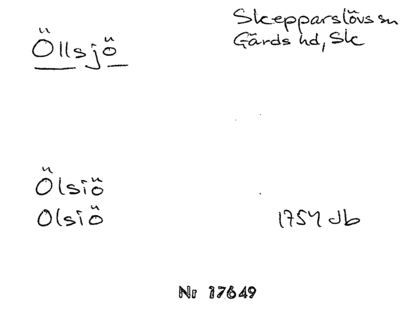 Öllsjö
Skepparslövs sn
Gärds hd, Sk
Ölsiö
Olsiö 1754 Jb
Nr 17649